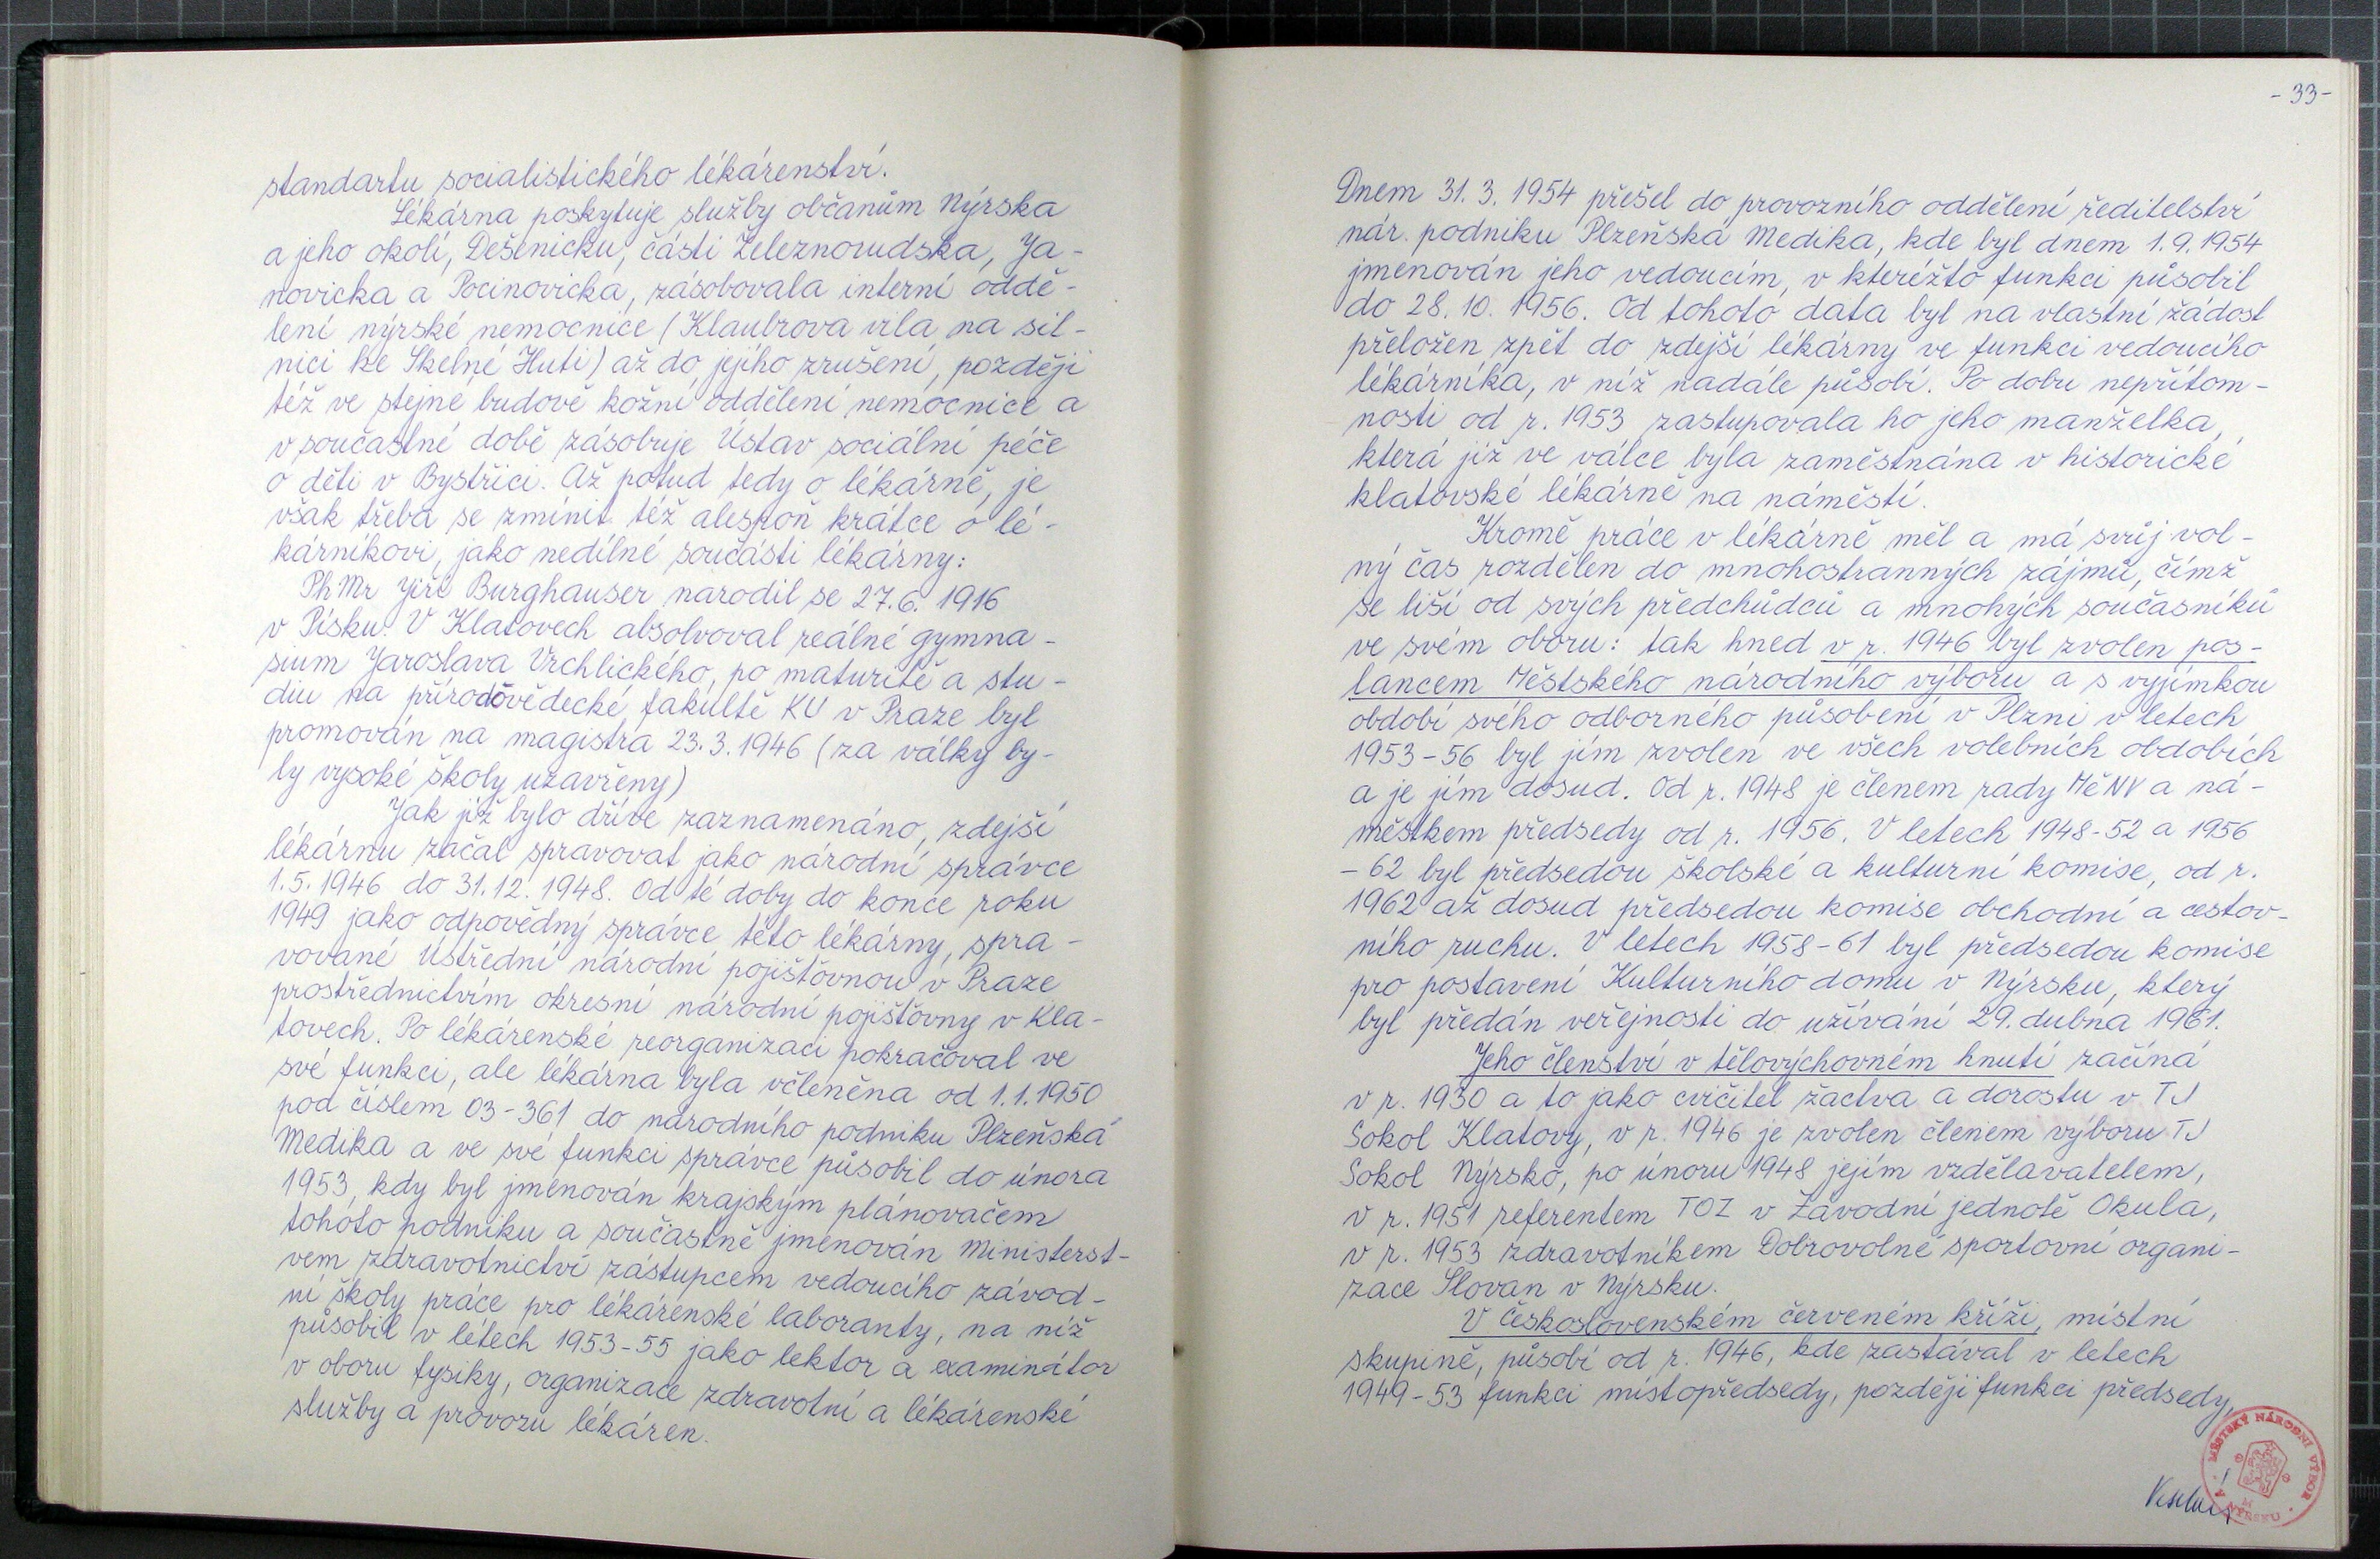 standartu socialistického lékárenství.
Lékárna poskytuje služby občanům Nýrska
a jeho okolí, Dešenicku, části Železnorudska, Ja-
novicka a Pocinovicka, zásobovala interní oddě-
lení nýrské nemocnice (Klaubrova vila na sil-
nici ke Skelné Huti) až do jejího zrušení, později
též ve stejné budově kožní oddělení nemocnice a
v součastné době zásobuje Ústav sociální péče
o děti v Bystřici. Až potud tedy o lékárně, je
však třeba se zmínit též alespoň krátce o lé-
kárníkovi, jako nedílné součásti lékárny:
PhMr Jiří Burghauser narodil se 27.6. 1916
v Písku. V Klatovech absolvoval reálné gymna-
sium Jaroslava Vrchlického, po maturitě a stu-
diu na přírodovědecké fakultě KU v Praze byl
promován na magistra 23.3.1946 (za války by-
ly vysoké školy uzavřeny)
Jak již bylo dříve zaznamenáno, zdejší
lékárnu začal spravovat jako národní správce
1.5.1946 do 31.12.1948. Od té doby do konce roku
1949 jako odpovědný správce této lékárny, spra-
vované Ústřední národní pojišťovnou v Praze
prostřednictvím okresní národní pojišťovny v Kla-
tovech. Po lékárenské reorganizaci pokračoval ve
své funkci, ale lékárna byla včleněna od 1.1.1950
pod číslem 03-361 do národního podniku Plzeňská
Medika a ve své funkci správce působil do února
1953, kdy byl jmenován krajským plánovačem
tohoto podniku a součastně jmenován Ministerst-
vem zdravotnictví zástupcem vedoucího závod-
ní školy práce pro lékárenské laboranty, na níž
působil v létech 1953-55 jako lektor a examinátor
v oboru fysiky, organizace zdravotní a lékárenské
služby a provozu lékáren.
-33-
Dnem 31.3.1954 přešel do provozního oddělení ředitelství
nár. podniku Plzeňská Medika, kde byl dnem 1.9.1954
jmenován jeho vedoucím, v kteréžto funkci působil
do 28.10.1956. Od tohoto data byl na vlastní žádost
přeložen zpět do zdejší lékárny ve funkci vedoucího
lékárníka, v níž nadále působí. Po dobu nepřítom-
nosti od r. 1953 zastupovala ho jeho manželka,
která již ve válce byla zaměstnána v historické
klatovské lékárně na náměstí.
Kromě práce v lékárně měl a má svůj vol-
ný čas rozdělen do mnohostranných zájmů, čímž
se liší od svých předchůdců a mnohých současníků
ve svém oboru: tak hned v r. 1946 byl zvolen pos-
lancem Městského národního výboru a s vyjímkou
období svého odborného působení v Plzni v letech
1953-56 byl jím zvolen ve všech volebních obdobích
a je jím dosud. Od r. 1948 je členem rady MěNV a ná-
městkem předsedy od r. 1956. V letech 1948-52 a 1956
-62 byl předsedou školské a kulturní komise, od r.
1962 až dosud předsedou komise obchodní a cestov-
ního ruchu. V letech 1958-61 byl předsedou komise
pro postavení Kulturního domu v Nýrsku, který
byl předán veřejnosti do užívání 29. dubna 1961.
Jeho členství v tělovýchovném hnutí začíná
v r. 1930 a to jako cvičitel žactva a dorostu v TJ
Sokol Klatovy, v r. 1946 je zvolen členem výboru TJ
Sokol Nýrsko, po únoru 1948 jejím vzdělavatelem,
v r. 1951 referentem TOZ v Závodní jednotě Okula,
v r. 1953 zdravotníkem Dobrovolné sportovní organi-
zace Slovan v Nýrsku.
V Československém červeném kříži, místní
skupině, působí od r. 1946, kde zastával v letech
1949-53 funkci místopředsedy, později funkci předsedy,
MĚSTSKÝ NÁRODNÍ VÝBOR
V NÝRSKU